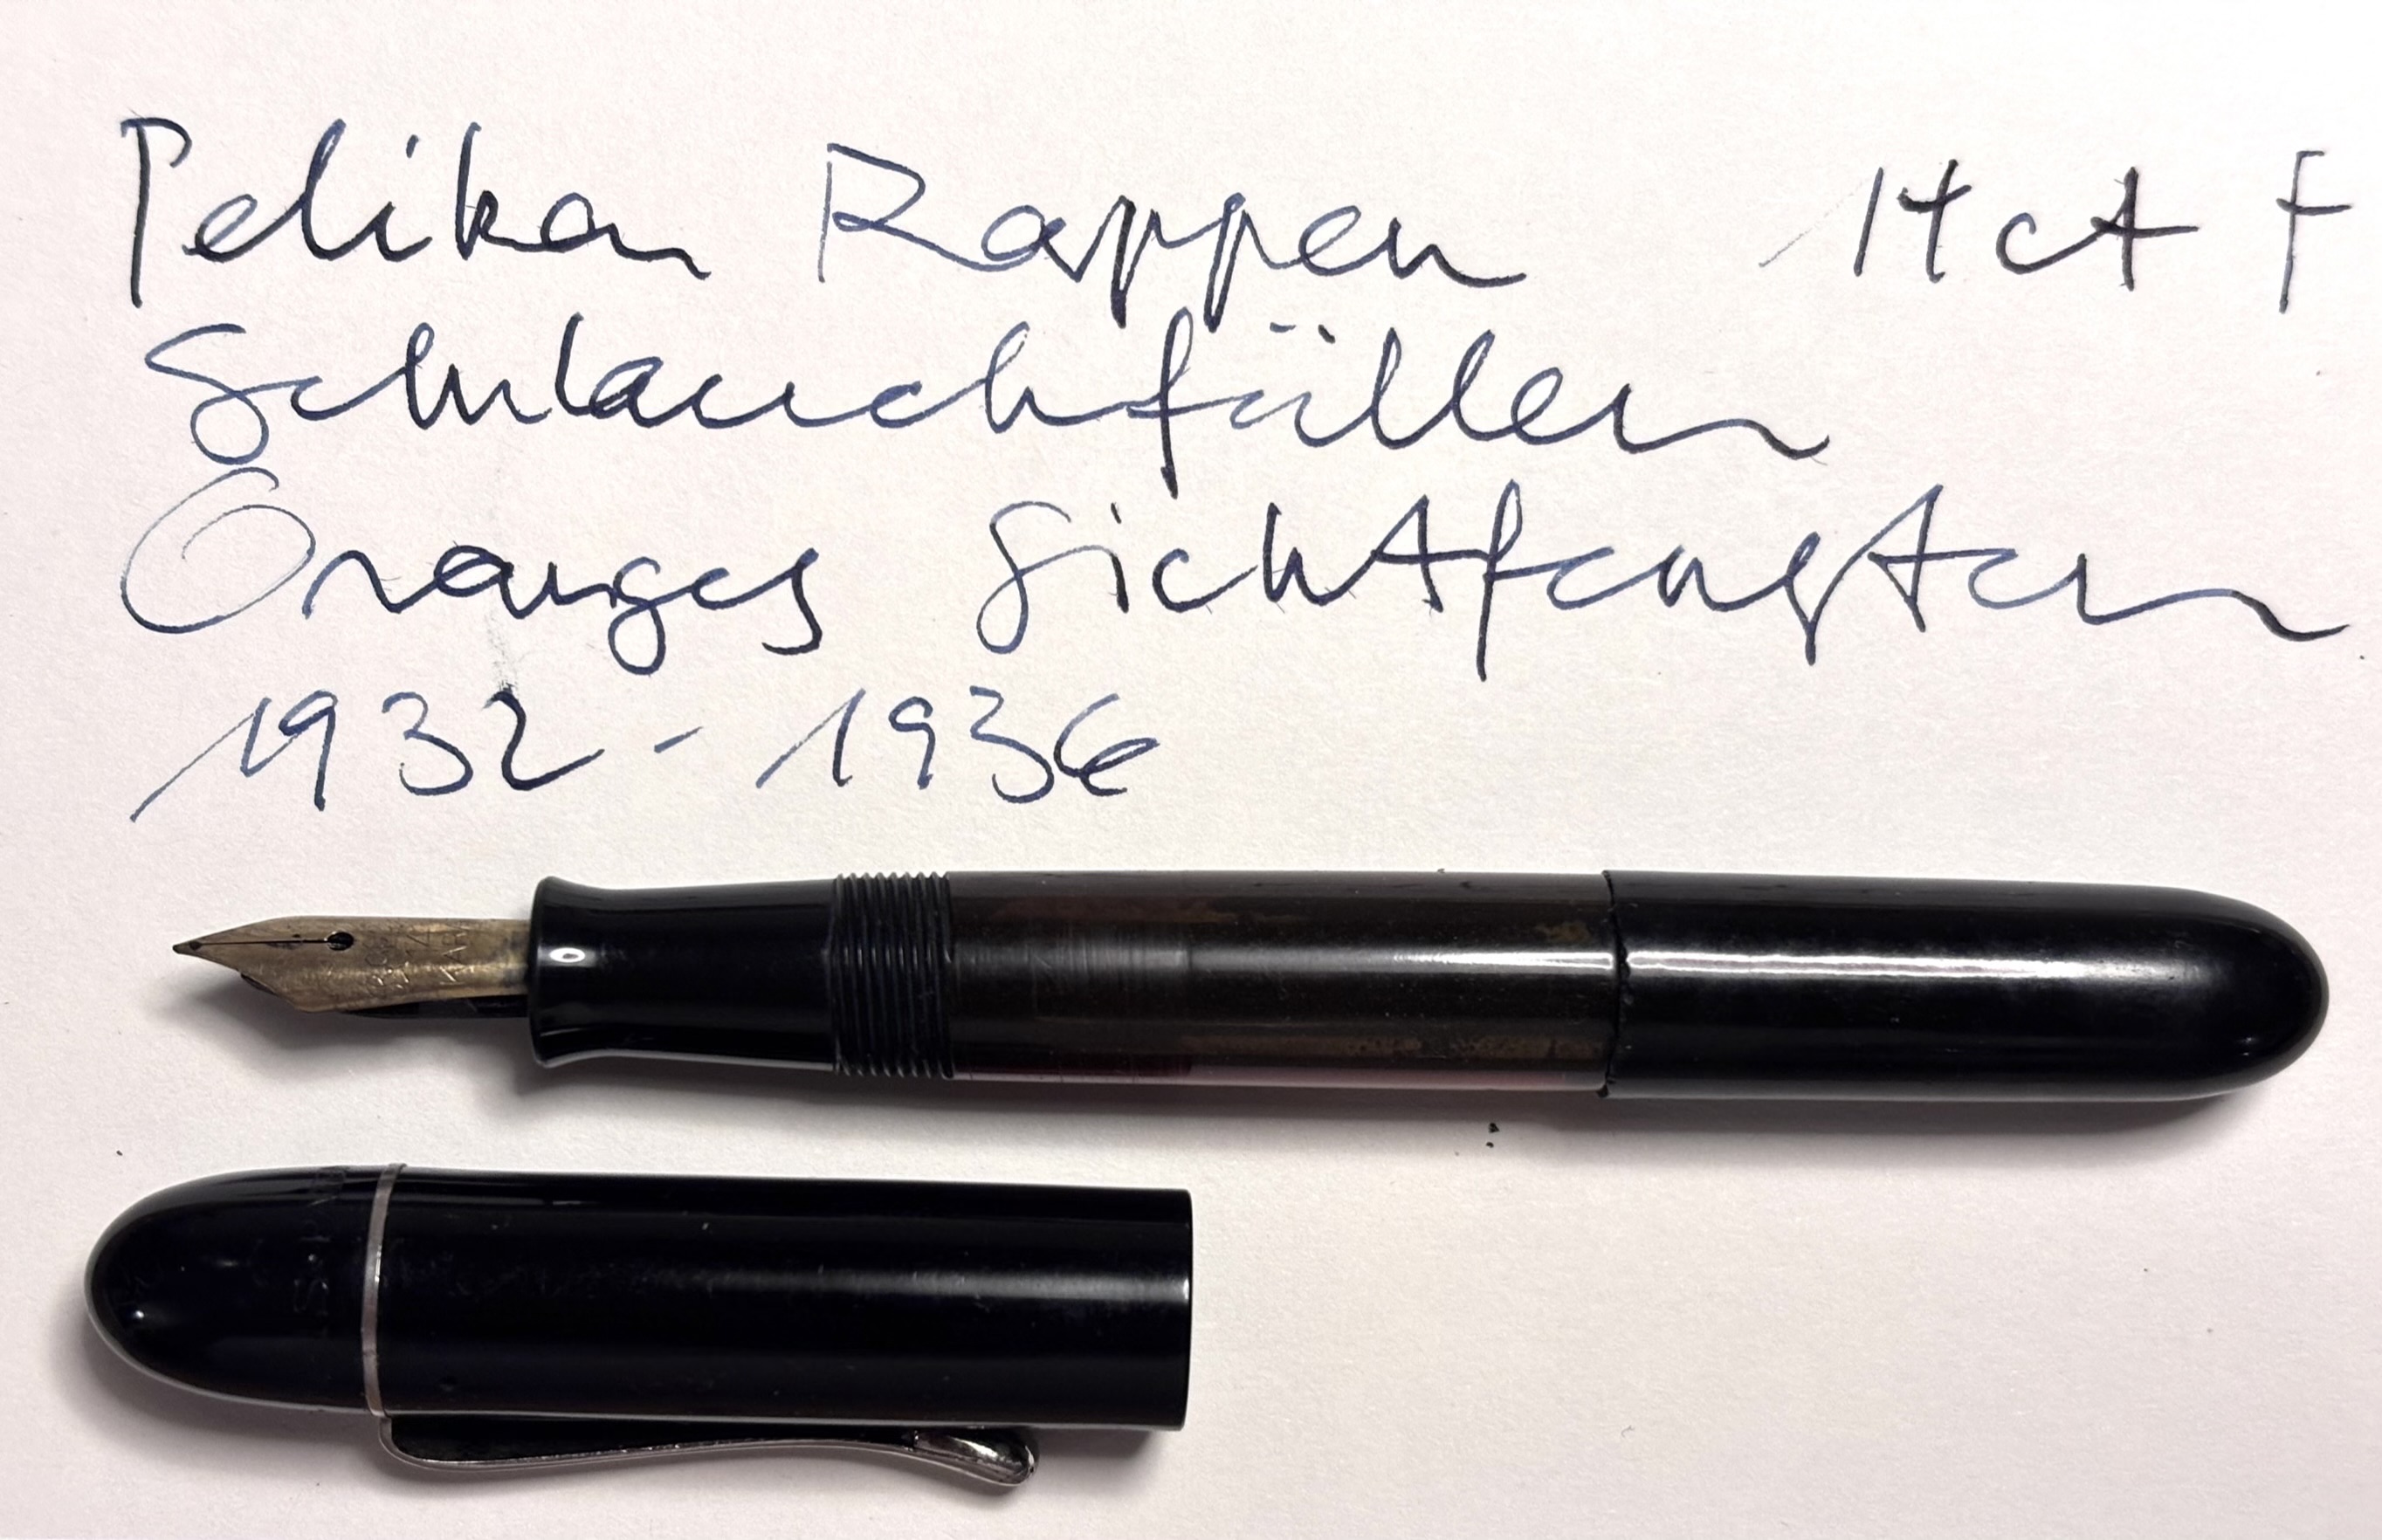 Pelikan Rappen 14 ct F
Schlauchfüller
Oranges Sichtfenster
1932 - 1936